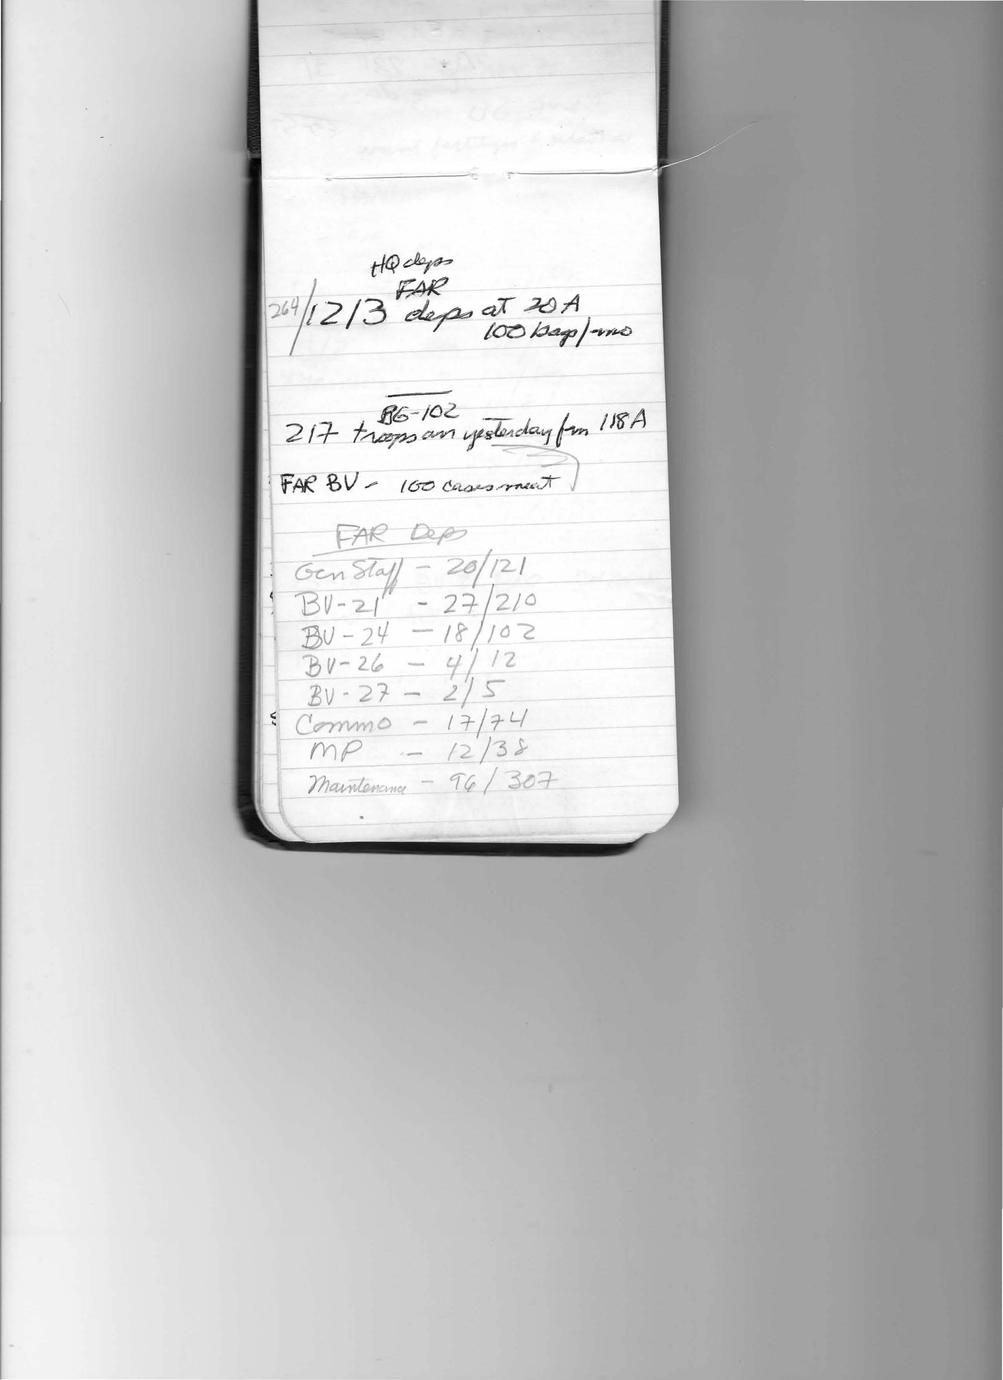 HQ deps
FAR
264/1213 deps at 20A
100 bags/mo
BG-102
217 troops arr yesterday fm 118A
FAR BV - 100 cases meat
FAR Deps
Gen Staff - 20/121
BV-21 - 27/210
BV-24 - 18/102
BV-26 - 4/12
BV-27 - 2/5
Commo - 17/74
MP - 12/38
Maintenance - 96/307